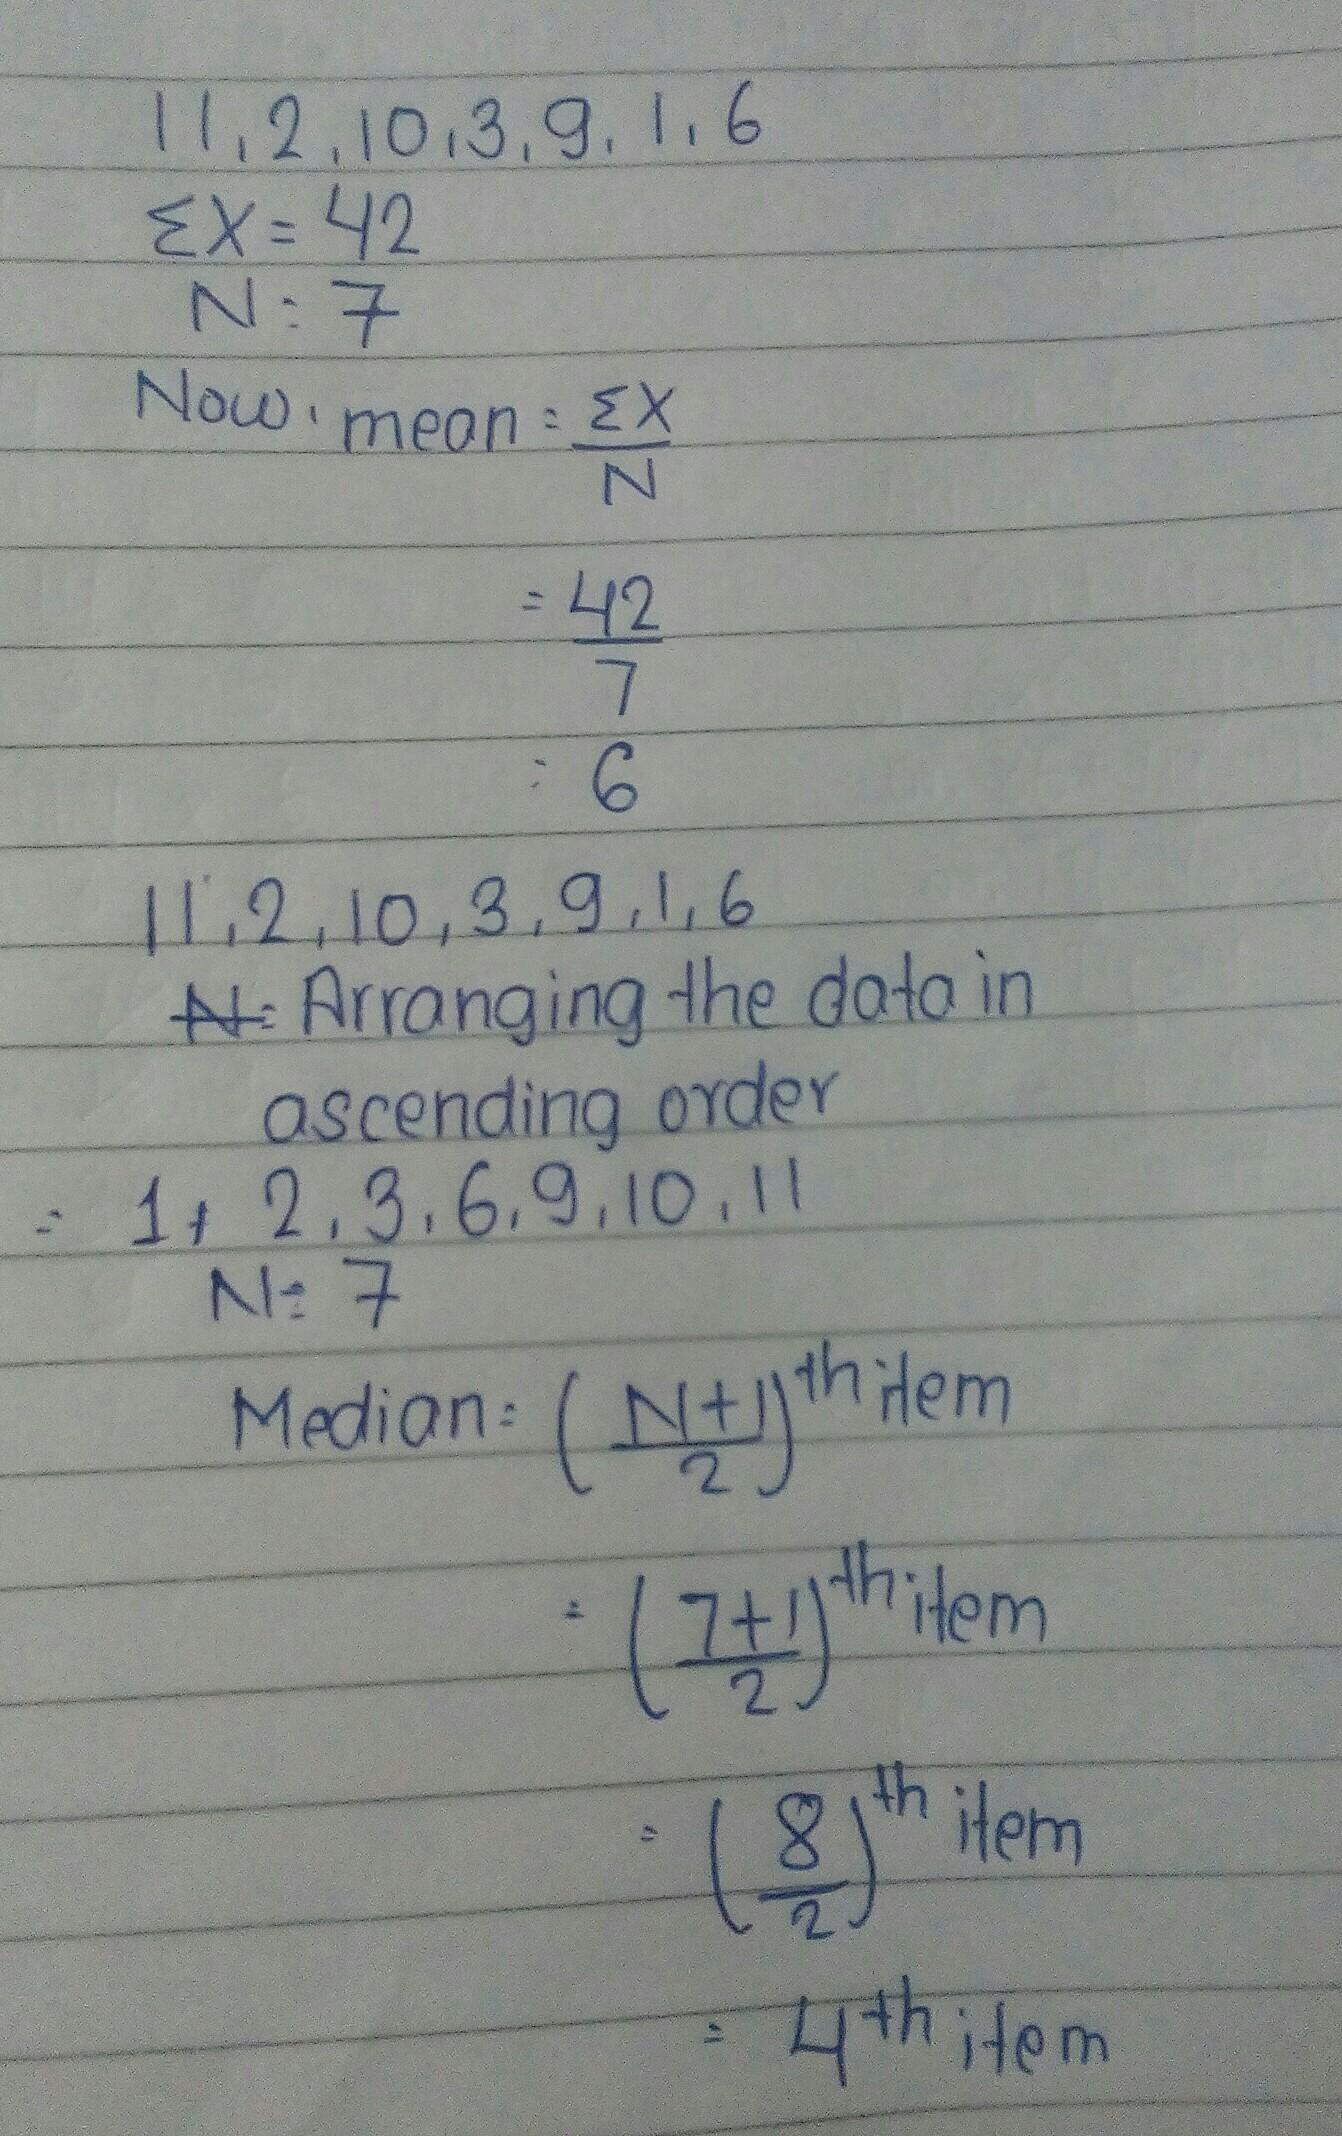 11, 2, 10, 3, 9, 1, 6
ΣX = 42
N = 7
Now, mean = ΣX
N
= 42
7
= 6
11, 2, 10, 3, 9, 1, 6
N= Arranging the data in
ascending order
= 1, 2, 3, 6, 9, 10, 11
N= 7
Median = (N+1/2)th item
= (7+1/2)th item
= (8/2)th item
= 4th item